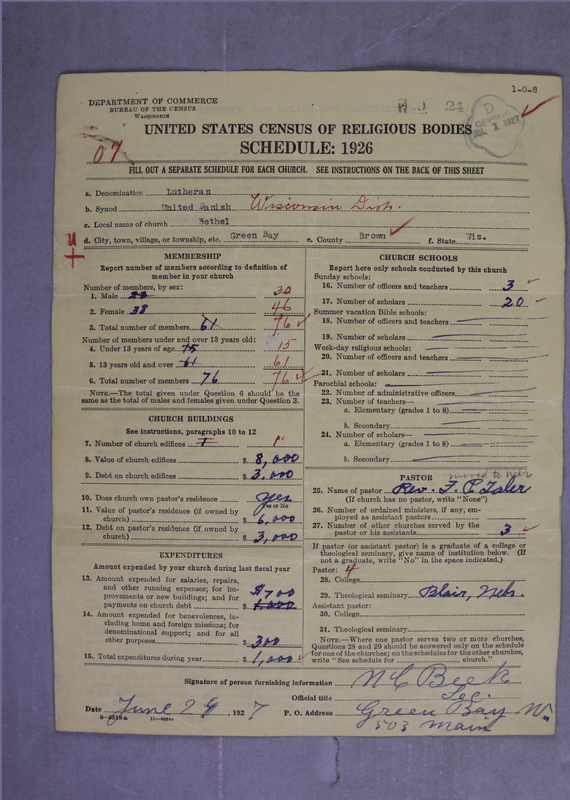 1-0-8
DEPARTMENT OF COMMERCE
BUREAU OF THE CENSUS
WASHINGTON
24
D
JUL 1 1927
UNITED STATES CENSUS OF RELIGIOUS BODIES
SCHEDULE: 1926
07
FILL OUT A SEPARATE SCHEDULE FOR EACH CHURCH. SEE INSTRUCTIONS ON THE BACK OF THIS SHEET
a. Denomination Lutheran
b. Synod United Danish Wisconsin Dist.
c. Local name of church Bethel
d. City, town, village, or township, etc. Green Bay e. County Brown f. State Wis.
MEMBERSHIP
Report number of members according to definition of
member in your church
Number of members, by sex:
1. Male 30
2. Female 38 46
3. Total number of members 61 76
Number of members under and over 13 years old:
4. Under 13 years of age 15 15
5. 13 years old and over 61 61
6. Total number of members 76 76
NOTE.—The total given under Question 6 should be
same as the total of males and females given under Question 3.
CHURCH BUILDINGS
See instructions, paragraphs 10 to 12
7. Number of church edifices 1 1
8. Value of church edifices $ 8,000
9. Debt on church edifices $ 3.000
10. Does church own pastor's residence yes
Yes or No
11. Value of pastor's residence (if owned by
church) $ 6,000
12. Debt on pastor's residence (if owned by
church) $ 3,000
EXPENDITURES
Amount expended by your church during last fiscal year
13. Amount expended for salaries, repairs,
and other running expenses; for im-
provements or new buildings; and for
payments on church debt $ 1,000
$700
14. Amount expended for benevolences, in-
cluding home and foreign missions; for
denominational support; and for all
other purposes $ 300
15. Total expenditures during year $ 1,000
CHURCH SCHOOLS
Report here only schools conducted by this church
Sunday schools:
16. Number of officers and teachers 3
17. Number of scholars 20
Summer vacation Bible schools:
18. Number of officers and teachers
19. Number of scholars
Week-day religious schools:
20. Number of officers and teachers
21. Number of scholars
Parochial schools:
22. Number of administrative officers
23. Number of teachers—
a. Elementary (grades 1 to 8)
b. Secondary
24. Number of scholars—
a. Elementary (grades 1 to 8)
b. Secondary
PASTOR
moved to Nebr
25. Name of pastor Rev. F. P.
(If church has no pastor, write "None")
26. Number of ordained ministers, if any, em-
ployed as assistant pastors
27. Number of other churches served by the
pastor or his assistants 3
If pastor (or assistant pastor) is a graduate of a college or
theological seminary, give name of institution below. (If
not a graduate, write "No" in the space indicated.)
Pastor: 4
28. College
29. Theological seminary Blair, Nebr.
Assistant pastor:
30. College
31. Theological seminary
NOTE.—Where one pastor serves two or more churches,
Questions 28 and 29 should be answered only on the schedule
for one of the churches; on the schedules for the other churches,
write "See schedule for church."
Signature of person furnishing information N C Beck
Official title Sec.
Date June 29, 1927 P. O. Address Green Bay W.
503 Main